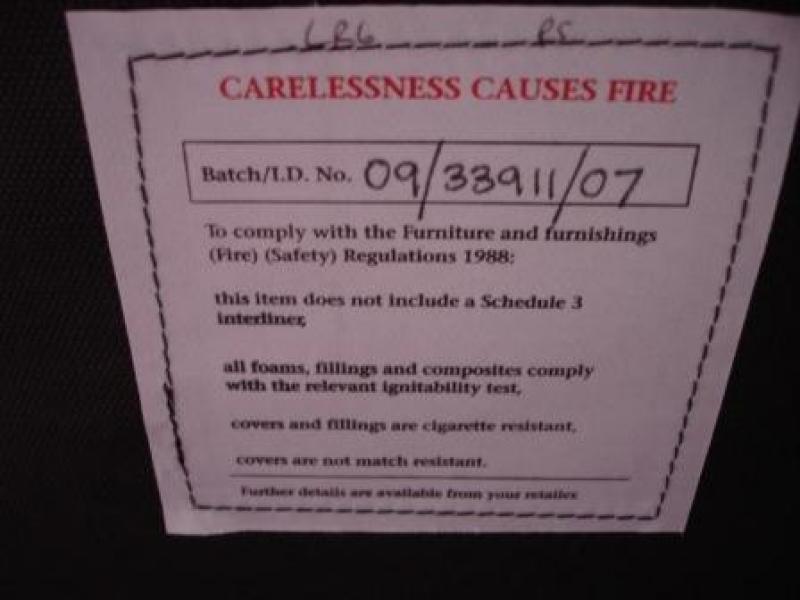 CARELESSNESS CAUSES FIRE
Batch/I.D. No. 09/33911/07
To comply with the Furniture and furnishings
(Fire) (Safety) Regulations 1988:
this item does not include a Schedule 3
interliner,
all foams, fillings and composites comply
with the relevant ignitability test,
covers and fillings are cigarette resistant,
covers are not match resistant.
Further details are available from your retailer